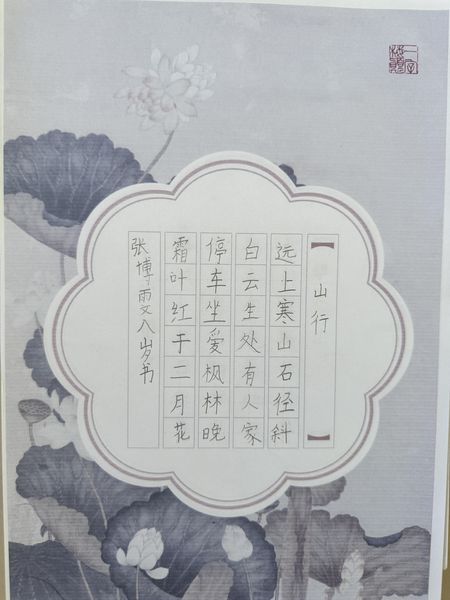 【山行】
远上寒山石径斜
白云生处有人家
停车坐爱枫林晚
霜叶红于二月花
张博雯八岁书